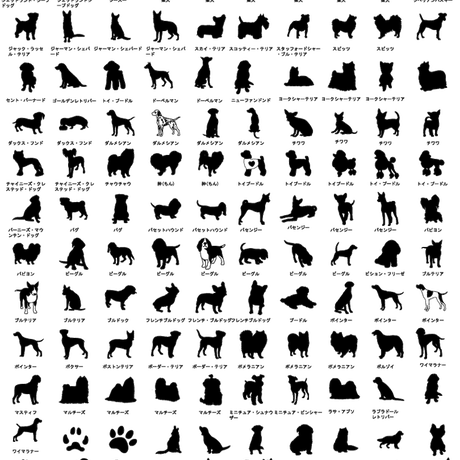 ドッグ
ーブドッグ
ジャック・ラッセル・テリア
ジャーマン・シェパード
ジャーマン・シェパード
ジャーマン・シェパード
スカイ・テリア
スコッティー・テリア
スタッフォードシャー・ブル・テリア
スピッツ
スピッツ
セント・バーナード
ゴールデンレトリバー
トイ・プードル
ドーベルマン
ドーベルマン
ニューファンドンド
ヨークシャーテリア
ヨークシャーテリア
ヨークシャーテリア
ダックス・フンド
ダックス・フンド
ダルメシアン
ダルメシアン
ダルメシアン
ダルメシアン
チワワ
チワワ
チワワ
チワワ
チャイニーズ・クレステッド・ドッグ
チャイニーズ・クレステッド・ドッグ
チャウチャウ
狆(ちん)
狆(ちん)
トイプードル
トイプードル
トイプードル
トイ・プードル
トイ・プードル
バーニーズ・マウンテン・ドッグ
パグ
パグ
バセットハウンド
バセットハウンド
バセンジー
バセンジー
バセンジー
バセンジー
パピヨン
パピヨン
ビーグル
ビーグル
ビーグル
ビーグル
ビーグル
ビーグル
ビーグル
ビション・フリーゼ
ブルテリア
ブルテリア
ブルテリア
ブルドック
フレンチブルドッグ
フレンチ・ブルドッグ
フレンチブルドッグ
プードル
ポインター
ポインター
ポインター
ポインター
ボクサー
ボストンテリア
ボーダー・テリア
ボーダー・テリア
ポメラニアン
ポメラニアン
ポメラニアン
ボルゾイ
ワイマラナー
マスティフ
マルチーズ
マルチーズ
マルチーズ
マルチーズ
ミニチュア・シュナウザー
ミニチュア・ピンシャー
ラサ・アプソ
ラブラドールレトリバー
ワイマラナー